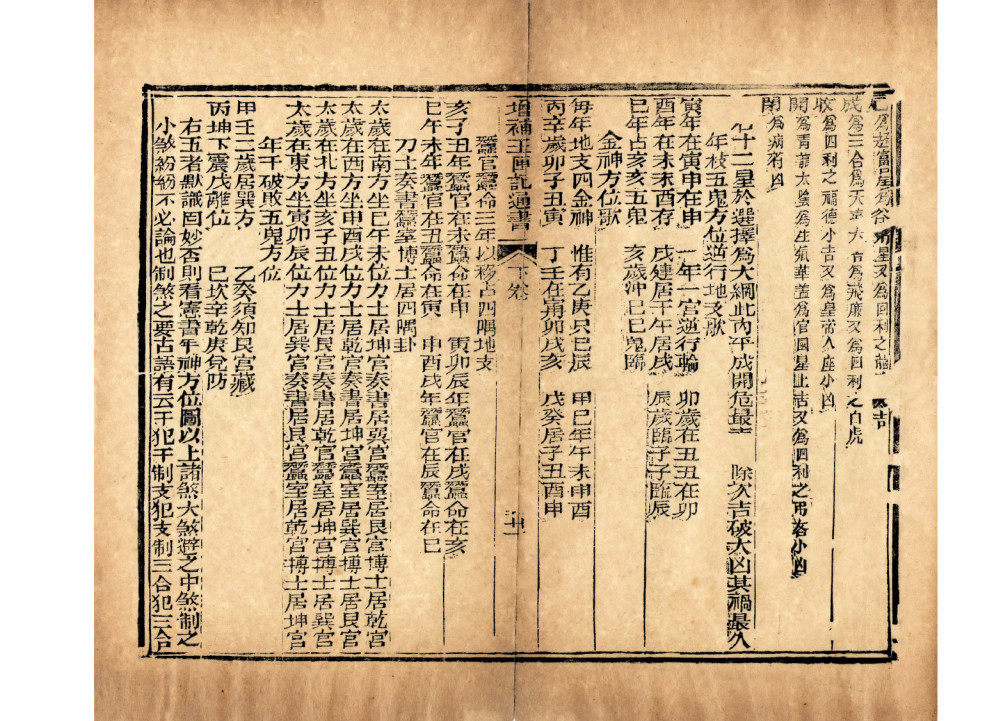 成爲三合爲天喜
收爲四利之福德小吉又爲皇帝入座小凶
開爲青龍太陰爲生氣華蓋爲官國星上吉又爲四利之弔客小凶
閉爲病符凶
十二星於選擇爲大綱此內平成開危最吉 除次吉破大凶其禍最久
年枝五鬼方位逆行地支歌
寅年在寅申在申 一年一宮逆行輪 卯歲在丑丑在卯
酉年在未未酉存 戌建居午午居戌 辰歲臨子子臨辰
巳年占亥亥五鬼 亥歲沖巳巳鬼臨
金神方位歌
每年地支四金神 惟有乙庚只巳辰 甲巳年午未申酉
丙辛歲卯子丑寅 丁壬在寅卯戌亥 戊癸居子丑酉申
增補玉匣記通書 下卷
蠶官蠶命三年以移占四隅地支
亥子丑年蠶官在未蠶命在申 寅卯辰年蠶官在戌蠶命在亥
巳午未年蠶官在丑蠶命在寅 申酉戌年蠶官在辰蠶命在巳
力士奏書蠶室博士居四隅卦
太歲在南方坐巳午未位力士居坤宮奏書居巽宮蠶室居艮宮博士居乾宮
太歲在西方坐申酉戌位力士居乾宮奏書居坤宮蠶室居巽宮博士居艮宮
太歲在北方坐亥子丑位力士居艮宮奏書居乾宮蠶室居坤宮博士居巽宮
太歲在東方坐寅卯辰位力士居巽宮奏書居艮宮蠶室居乾宮博士居坤宮
年千破敗五鬼方位
甲壬二歲居巽方 乙癸須知艮宮藏
丙坤丁震戊離位 巳坎辛乾庚兌防
右五者默識曰妙否則看憲書年神方位圖以上諸煞大煞避之中煞制之
小煞紛紛不必論也制煞之要古語有云干犯干制支犯支制三合犯三合